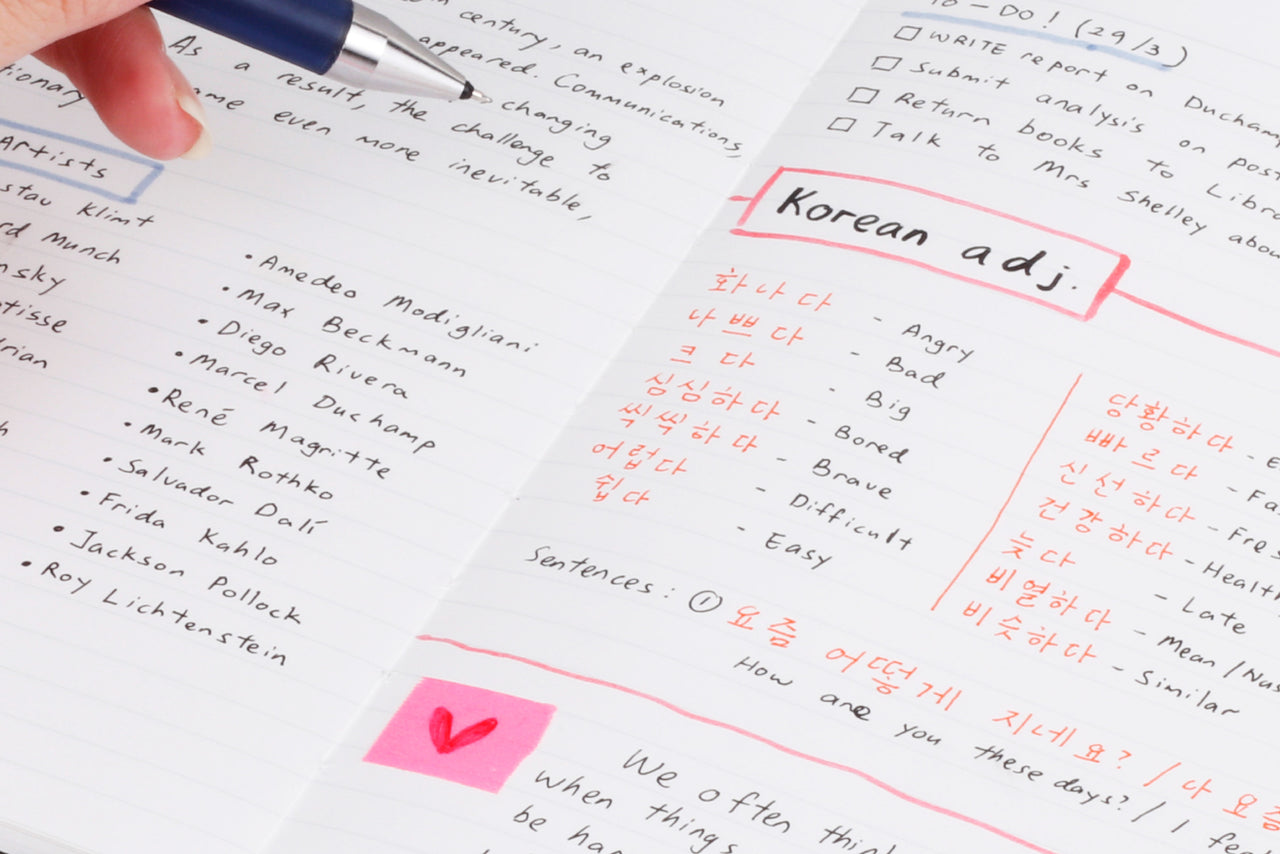 century, an explosion
appeared. Communications,
As a result, the challenge to changing
even more inevitable,
Artists
Klimt
Munch
• Amedeo Modigliani
• Max Beckmann
• Diego Rivera
• Marcel Duchamp
• René Magritte
• Mark Rothko
• Salvador Dalí
• Frida Kahlo
• Jackson Pollock
• Roy Lichtenstein
TO-DO! (29/3)
WRITE report on Duchamp
Submit analysis on
Return books to
Talk to Mrs Shelley
Korean adj.
화나다 - Angry
나쁘다 - Bad
크다 - Big
심심하다 - Bored
씩씩하다 - Brave
어렵다 - Difficult
쉽다 - Easy
당황하다 -
빠르다 -
신선하다 -
건강하다 -
늦다 - Late
비열하다 - Mean /
비슷하다 - Similar
Sentences: ① 요즘 어떻게 지네요? / 나 요즘
How are you these days? / I
We often
when things
be